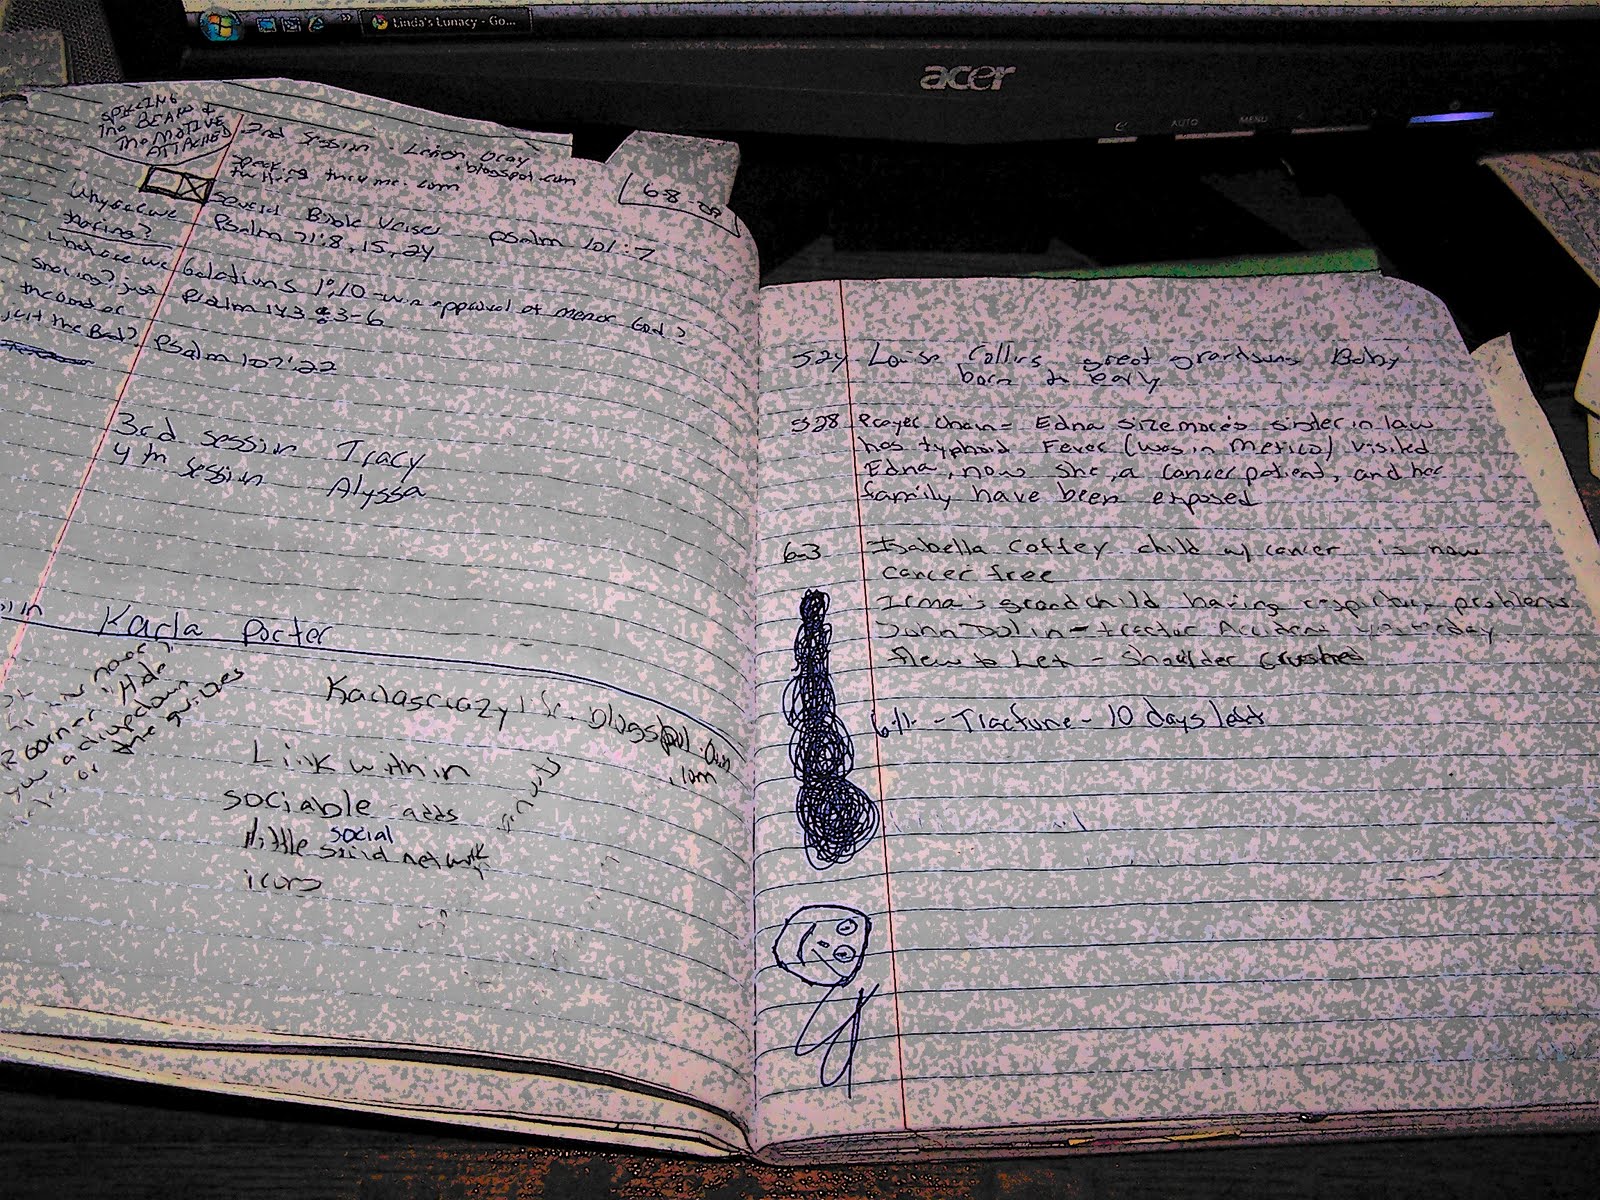 Linda's Lunacy - Go...
acer
AUTO MENU
SPILLING
The BEANS
MOTIVE
ATTACHED
2nd Session - Leigh Gray
.blogspot.com
thru me.com
6-8-09
Several Bible Verses Psalm 101:7
Why are we Psalm 71:8, 15, 24
sharing?
What are we Galatians 1:10 - win approval of men or God?
sharing? just Psalm 143:3-6
the Good or
just the Bad? Psalm 107:22
3rd session Tracy
4th session Alyssa
Karla Porter
Karlascrazylife.blogspot.com
.com
Link within
sociable adds
little social network
icons
524 Louise Collins great grandsons Baby
born early
528 Prayer Chain - Edna Sizemore's sister in law
has typhoid Fever (was in Mexico) visited
Edna, now she, a cancer patient, and her
family have been exposed
6-3 Isabella Coffey child w/ cancer is now
cancer free
Irma's grandchild having respiratory problems
John Dolin - tractor Accident yesterday
flew to Lex - shoulder crushed
- 10 days left